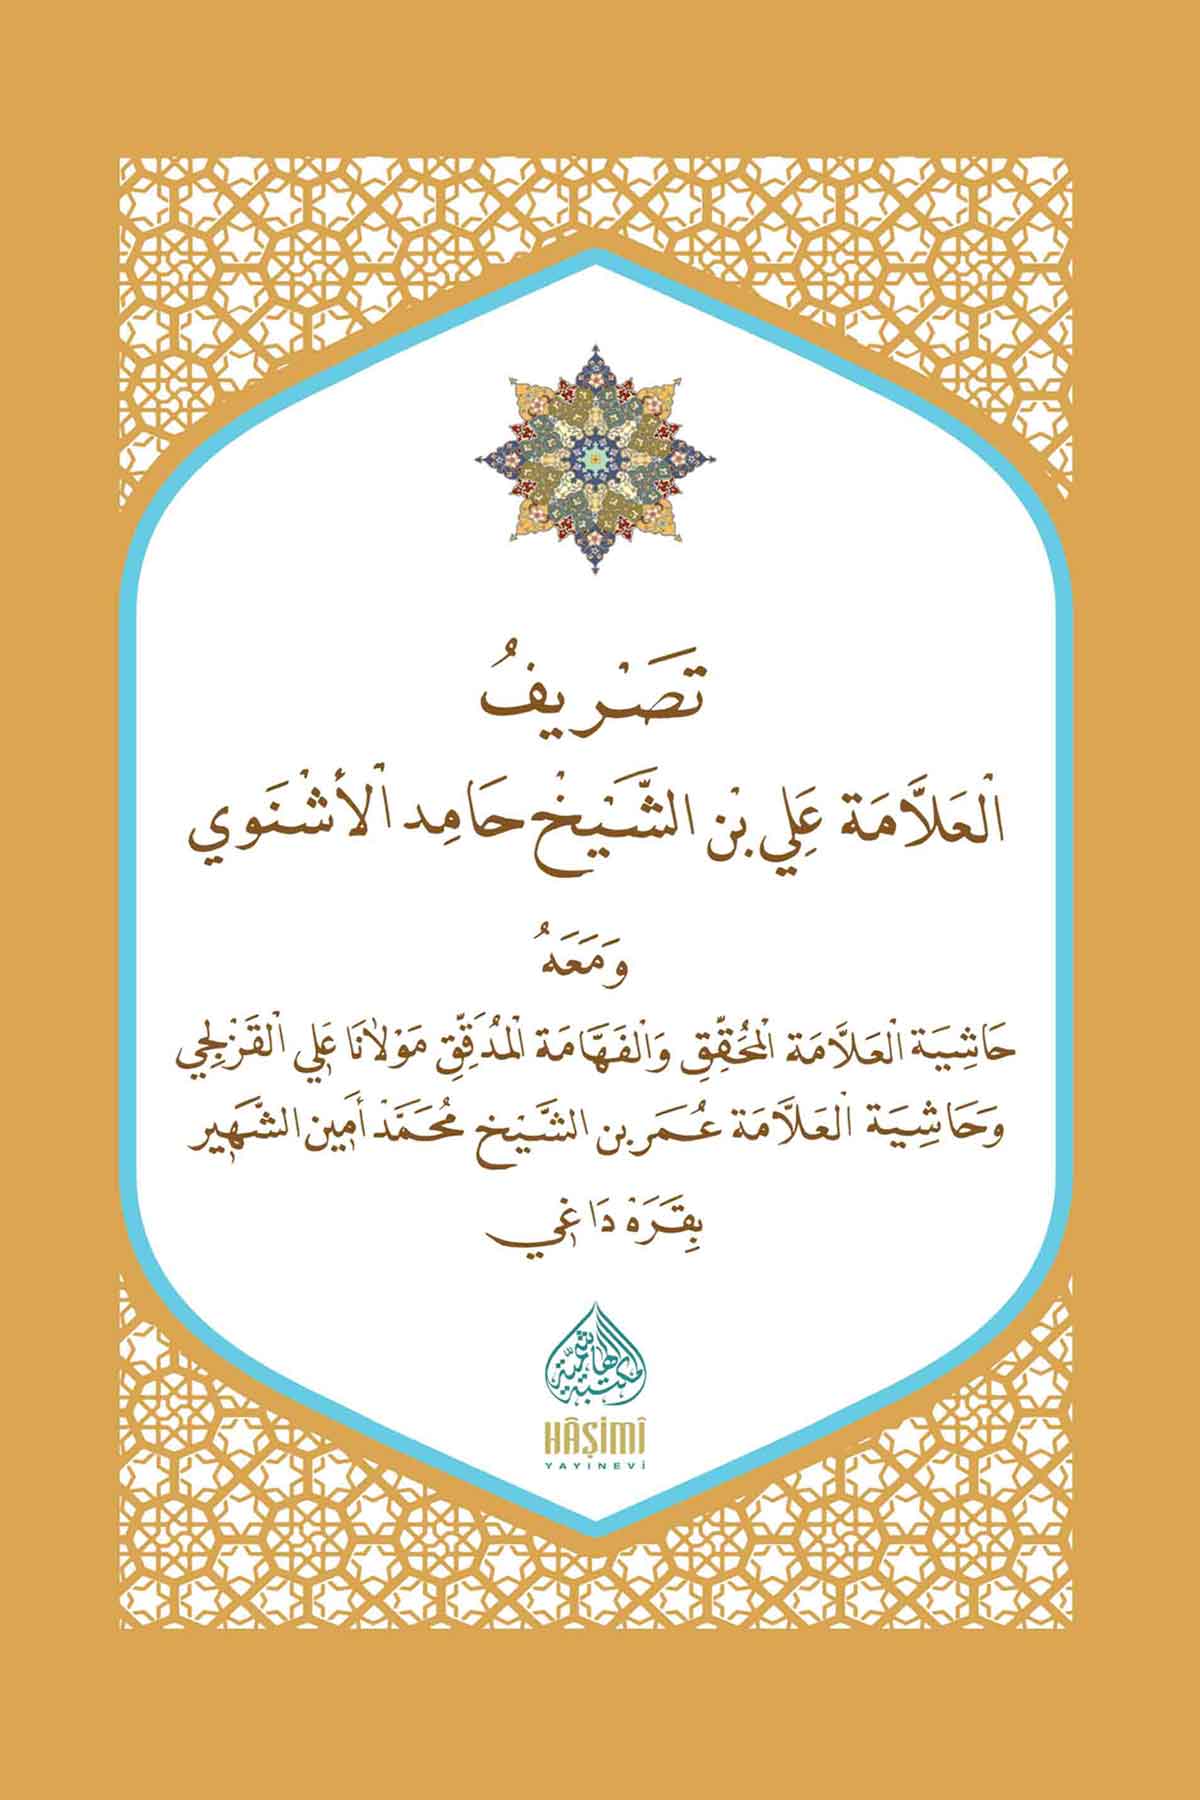 تَصْرِيفُ
الْعَلَّامَة عَلِي بْن الشَّيْخ حَامِد الْأُشْنَوِي
وَمَعَهُ
حَاشِيَة الْعَلَّامَة الْمُحَقِّقِ وَالْفَهَّامَة الْمُدَقِّقِ مَوْلَانَا عَلِي الْقَزْلَجِي
وَحَاشِيَة الْعَلَّامَة عُمَر بن الشَّيْخ مُحَمَّدْ أَمِين الشَّهِير
بِقَرَهْ دَاغِي
مكتبة الهاشمية
HÂŞİMÎ
YAYINEVİ